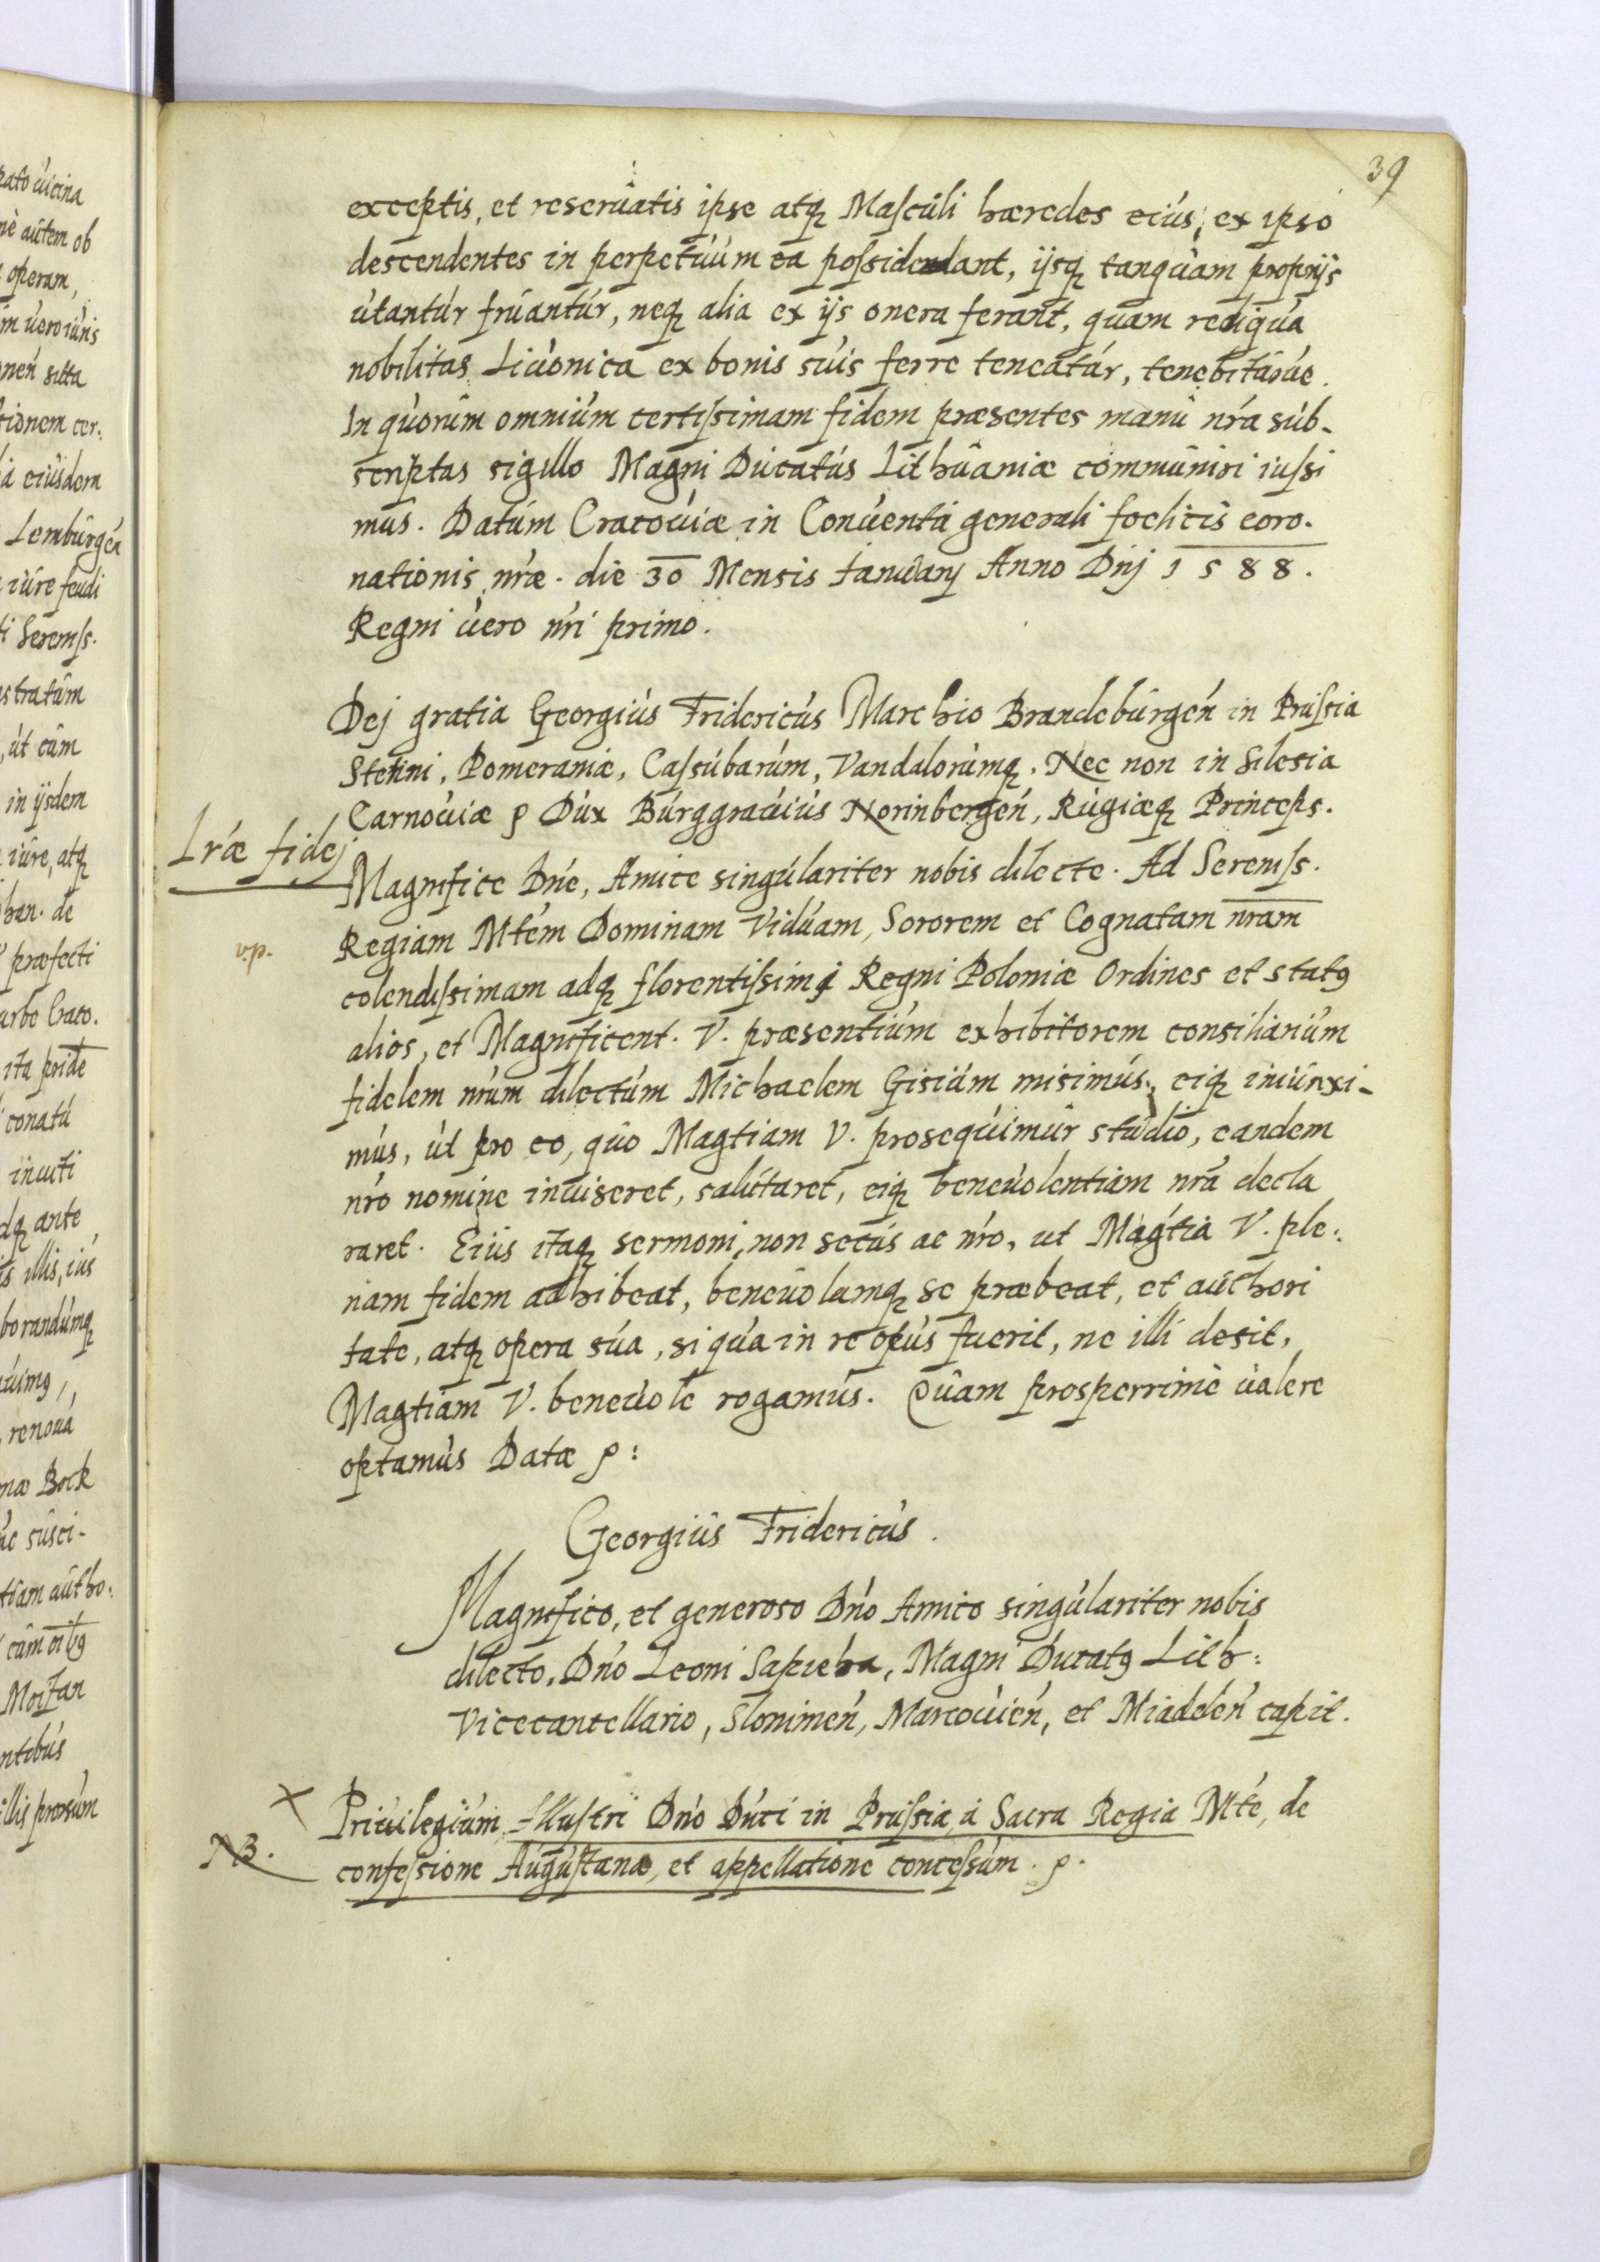 39
exceptis, et reseruatis ipse atq; Masculi hæredes eius, ex ipso
descendentes in perpetuum ea possidendant, ijsq; tanquam proprijs
utantur fruantur, neq; alia ex ijs onera ferant, quam reliqua
nobilitas Liuonica ex bonis suis ferre teneatur, tenebiturue.
In quorum omnium certissimam fidem præsentes manu nr̃a sub-
scriptas sigillo Magni Ducatus Lithuaniæ communiri iussi
mus. Datum Cracouiæ in Conuentu generali foelicis coro-
nationis nr̃æ. die 30 Mensis Januarij Anno Dnj 1588.
Regni uero nr̃i primo.
Dej gratia Georgius Fridericus Marchio Brandeburgeń in Prussia
Stetini, Pomeraniæ, Cassubarum, Vandalorumq;. Nec non in Silesia
Carnouiæ ꝑ Dux Burggrauius Norinbergeń, Rugiæq; Princeps.
Lr̃æ fidej
Magnifice Dńe, Amice singulariter nobis dilecte. Ad Sereniss.
v.p.
Regiam Mtem Dominam Viduam, Sororem et Cognatam nram
colendissimam adq; florentissimi Regni Poloniæ Ordines et statꝰ
alios, et Magnificent. V. præsentium exhibitorem consiliarium
fidelem nrum dilectum Michaelem Gisium misimus, eiq; iniunxi-
mus, ut pro eo, quo Magtiam V. prosequimur studio, eandem
nr̃o nomine inuiseret, salutaret, eiq; beneuolentiam nr̃ã decla
raret. Eius itaq; sermoni, non secus ac nr̃o, ut Magtia V. ple:
nam fidem adhibeat, beneuolamq; se præbeat, et authori
tate, atq; opera sua, si qua in re opus fuerit, ne illi desit,
Magtiam V. beneuole rogamus. Quam prosperrimè ualere
optamus Datæ ꝑ:
Georgius Fridericus.
Magnifico, et generoso Dńo Amico singulariter nobis
dilecto, Dńo Leoni Sapieha, Magni Ducatꝰ Lith:
Vicecancellario, Slonimeń, Marcouień, et Miadeleń capit.
× Priuilegium Illustri Dńo Duci in Prussia, à Sacra Regia Mte, de
NB. confessione Augustana, et appellatione concessum. ꝑ.